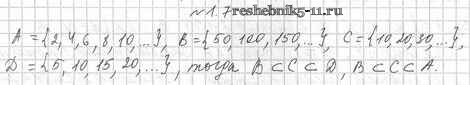 №1.7 reshebnik5-11.ru
A = {2, 4, 6, 8, 10, ...}, B = {50, 100, 150, ...}, C = {10, 20, 30, ...},
D = {5, 10, 15, 20, ...}, тогда B ⊂ C ⊂ D, B ⊂ C ⊂ A.